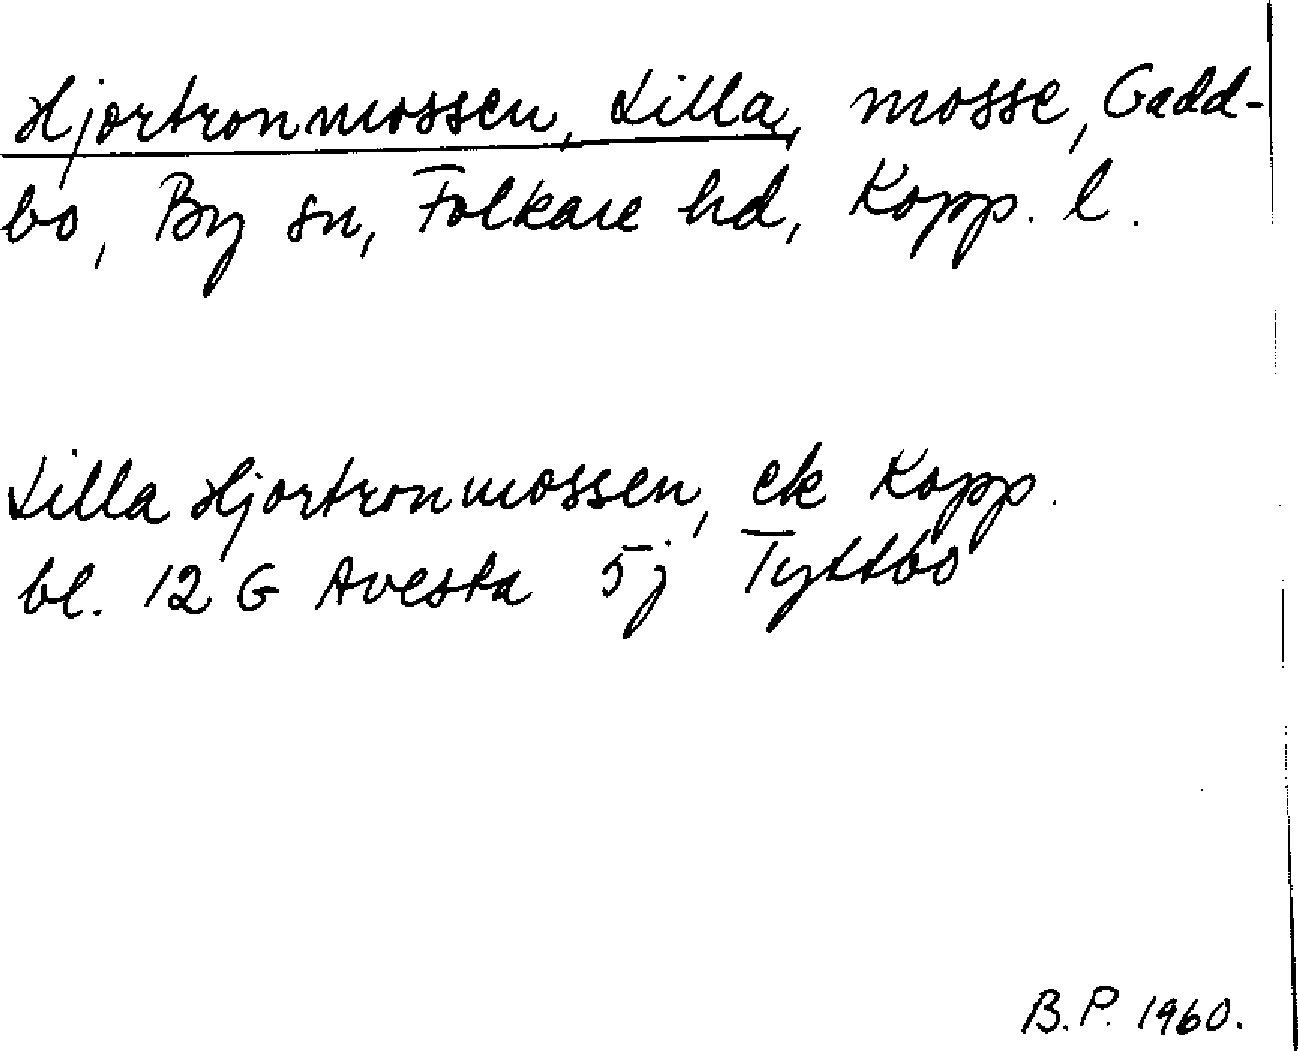 Hjortronmossen, Lilla, mosse, Gadd-
bo, By sn, Folkare hd, Kopp. l.
Lilla Hjortronmossen, ek Kopp.
bl. 12 G Avesta 5j Tyttbo
B.P. 1960.